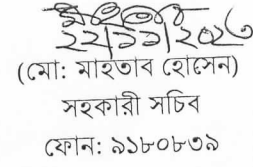 ২২/১১/২০২৩
(মো: মাহতাব হোসেন)
সহকারী সচিব
ফোন: ৯১৮০৮৩৯